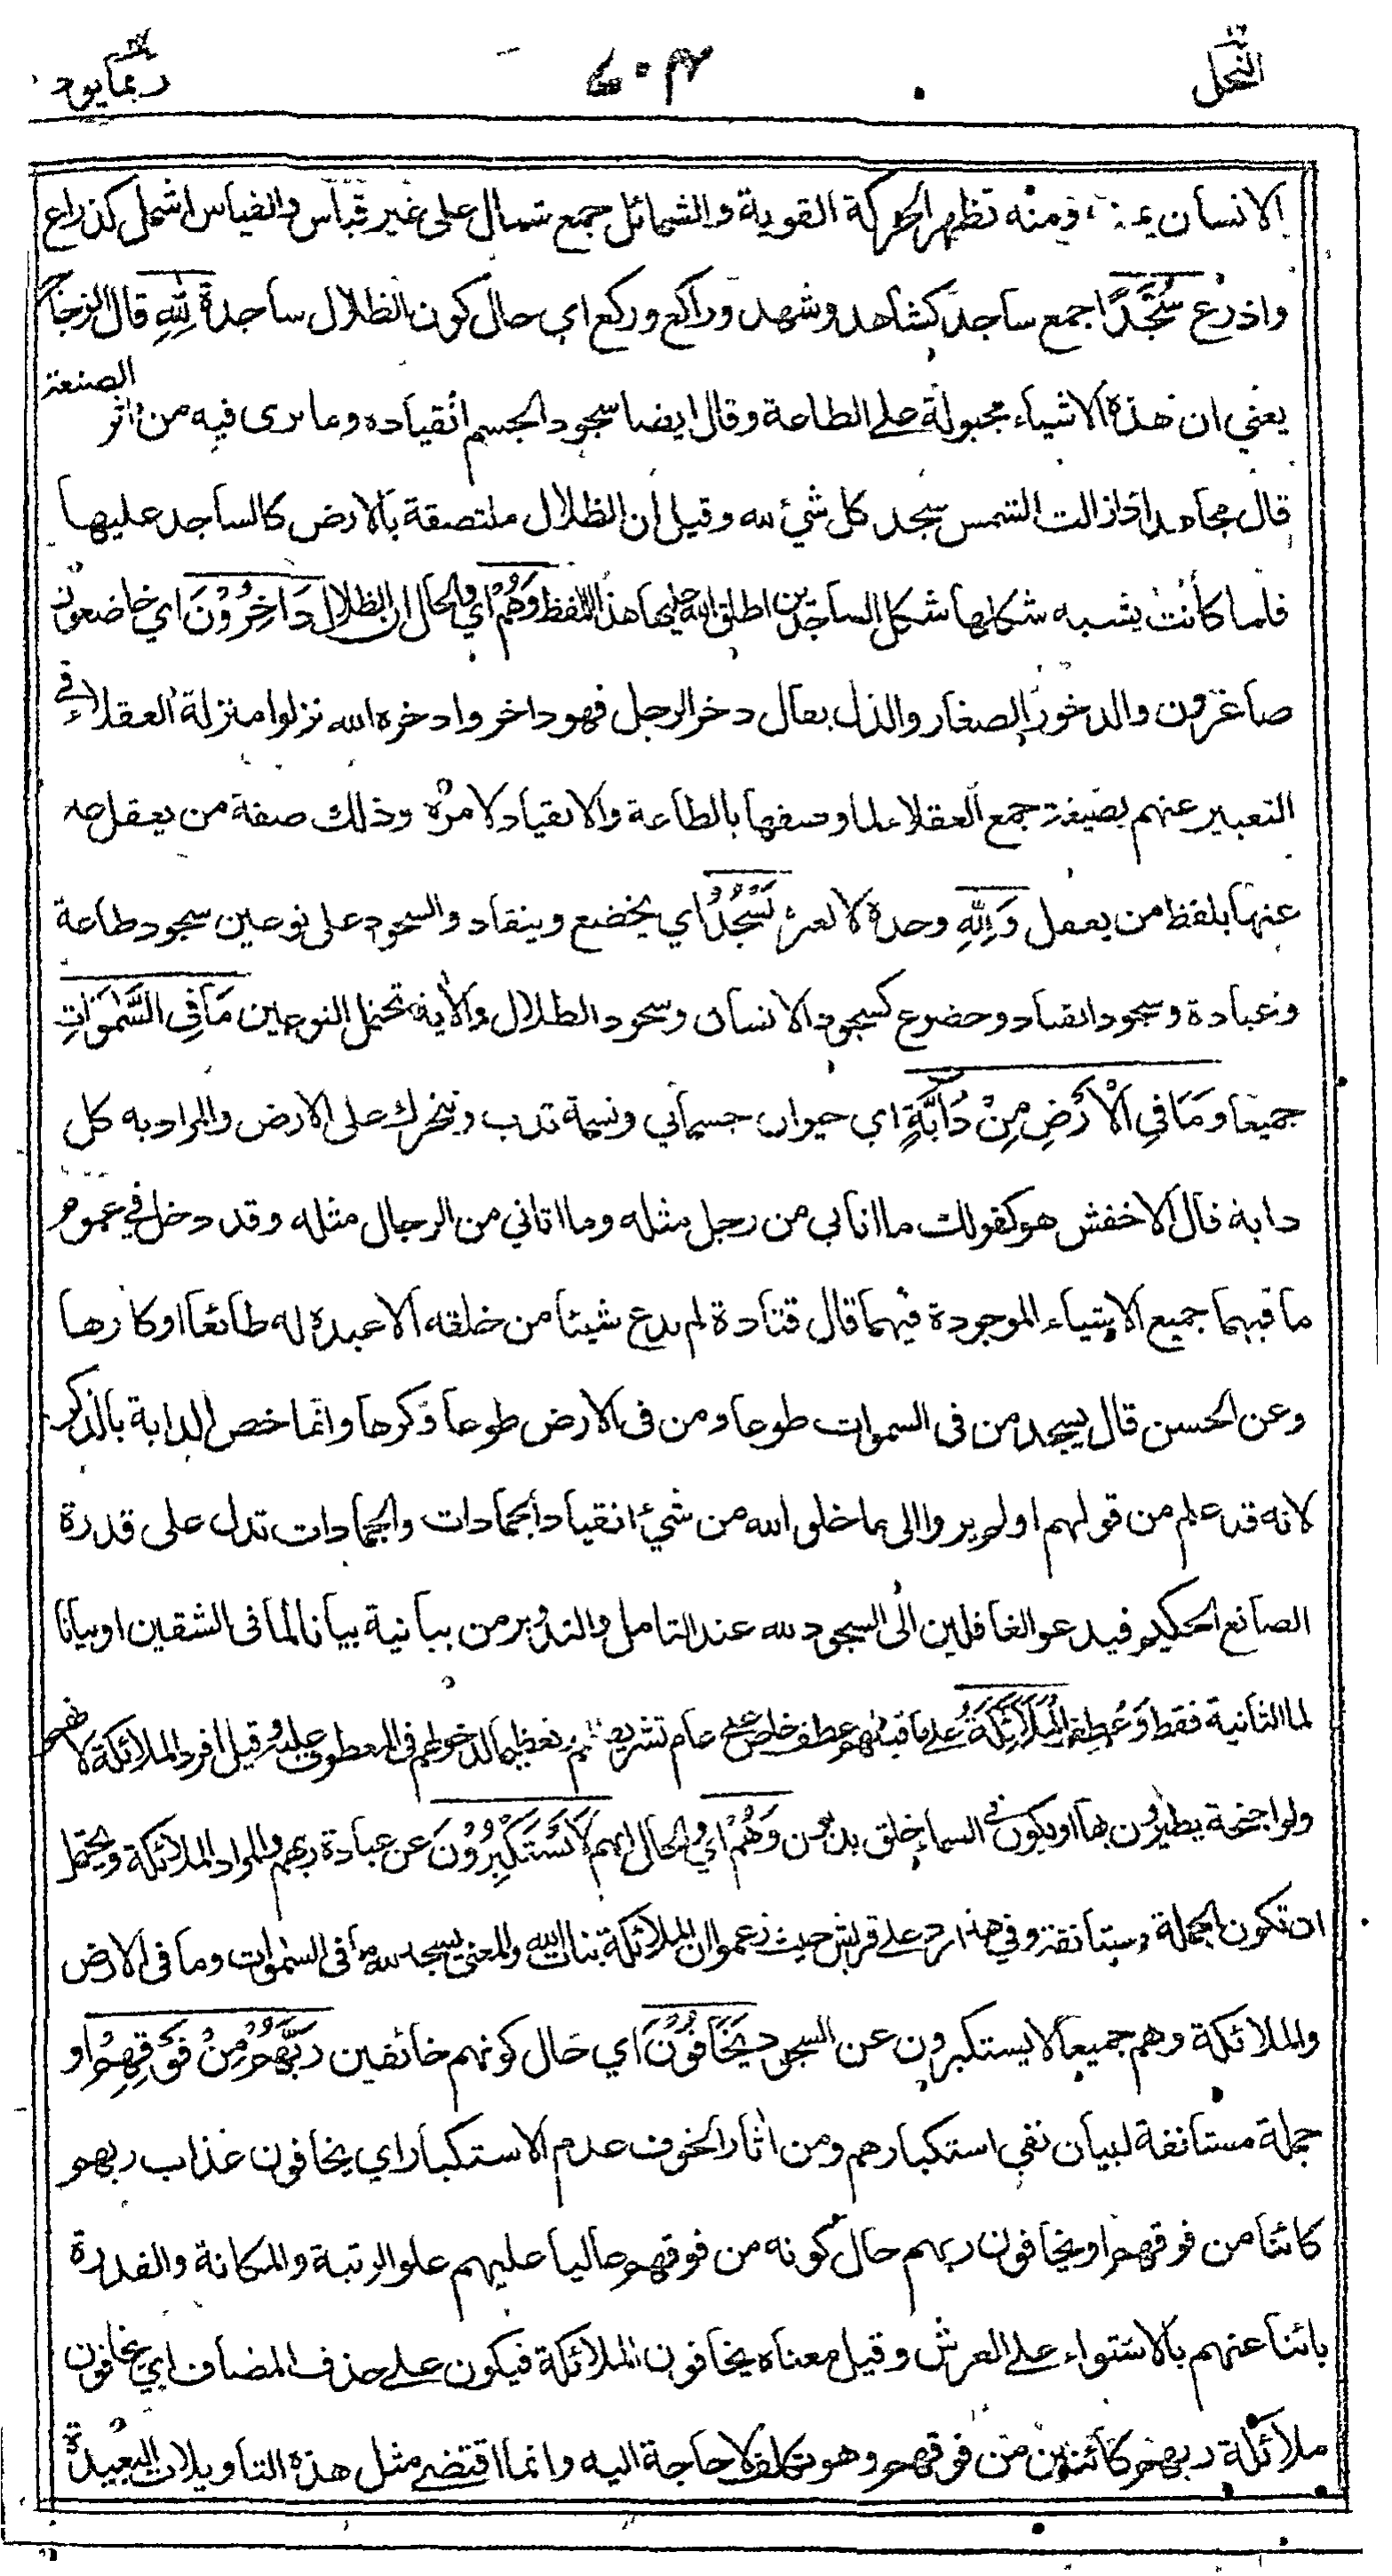 النحل ١٦
٦٠٣
ربما يود ١٤
الانسان ومنه تظهر الحركة القوية والشمائل جمع شمال على غير قياس والقياس اشمل كذراع
واذرع سُجَّدًا جمع ساجد كشاهد وشهد وراكع وركع اي حال كون الظلال ساجدة لِلّٰهِ قال الزجاج
يعني ان هذه الاشياء مجبولة على الطاعة وقال ايضا سجود الجسم انقياده وما يرى فيه من اثر الصنعة
قال مجاهد اذا زالت الشمس سجد كل شيء لله وقيل ان الظلال ملتصقة بالارض كالساجد عليها
فلما كانت يشبه شكلها شكل الساجدين اطلق الله عليها هذا اللفظ وَهُمْ اي والحال ان الظلال دَاخِرُوْنَ اي خاضعون
صاغرون والدخور الصغار والذل يقال دخر الرجل فهو داخر وادخره الله نزلوا منزلة العقلاء في
التعبير عنهم بصيغة جمع العقلاء لما وصفها بالطاعة والانقياد لامره وذلك صفة من يعقل عبر
عنها بلفظ من يعقل وَلِلّٰهِ وحده لا لغيره يَسْجُدُ اي يخضع وينقاد والسجود على نوعين سجود طاعة
وعبادة وسجود انقياد وخضوع كسجود الانسان وسجود الظلال والأية تحتمل النوعين مَا فِى السَّمٰوٰاتِ
جميعا وَمَا فِي الْاَرْضِ مِنْ دَابَّةٍ اي حيوان جسماني ونسمة تدب وتتحرك على الارض والمراد به كل
دابة قال الاخفش هو كقولك ما اتاني من رجل مثله وما اتاني من الرجال مثله وقد دخل في عموم
ما فيهما جميع الاشياء الموجودة فيهما قال قتادة لم يدع شيئا من خلقه الا عبده له طائعا او كارها
وعن الحسن قال يسجد من فى السموات طوعا ومن فى الارض طوعا وكرها وانما خص الدابة بالذكر
لانه قد علم من قولهم اولم يروا الى ما خلق الله من شيء انقياد الجمادات والجمادات تدل على قدرة
الصانع الحكيم فيدعو الغافلين الى السجود لله عند التامل والتدبر من بيانية بيانا لما فى الشقين او بيانا
لما الثانية فقط وَعُطِف الْمَلَائِكَةُ على ما قبلهم عطف خاص على عام تشريفا لهم وتعظيما لدخولهم فى المعطوف عليه وقيل افرد الملائكة لانهم
ولو اجنحة يطيرون بها او يكون في السماء خلق يدبون وَهُمْ اي والحال انهم لَا يَسْتَكْبِرُوْنَ عن عبادة ربهم والمراد الملائكة ويحتمل
ان تكون الجملة مستانفة وفي هذا رد على قريش حيث زعموا ان الملائكة بنات الله والمعنى يسجد لله ما فى السموات وما فى الارض
والملائكة وهم جميعا لا يستكبرون عن السجود يَخَافُوْنَ اي حال كونهم خائفين رَبَّهُمْ مِنْ فَوْقِهِمْ او
جملة مستانفة لبيان نفي استكبارهم ومن اثار الخوف عدم الاستكبار اي يخافون عذاب ربهم
كائنا من فوقهم او يخافون ربهم حال كونه من فوقهم عاليا عليهم علو الرتبة والمكانة والقدرة
بائنا عنهم بالاستواء على العرش وقيل معناه يخافون الملائكة فيكون على حذف المضاف اي يخافون
ملائكة ربهم كائنين من فوقهم وهو تكلف لا حاجة اليه وانما اقتضى مثل هذه التاويلات البعيدة